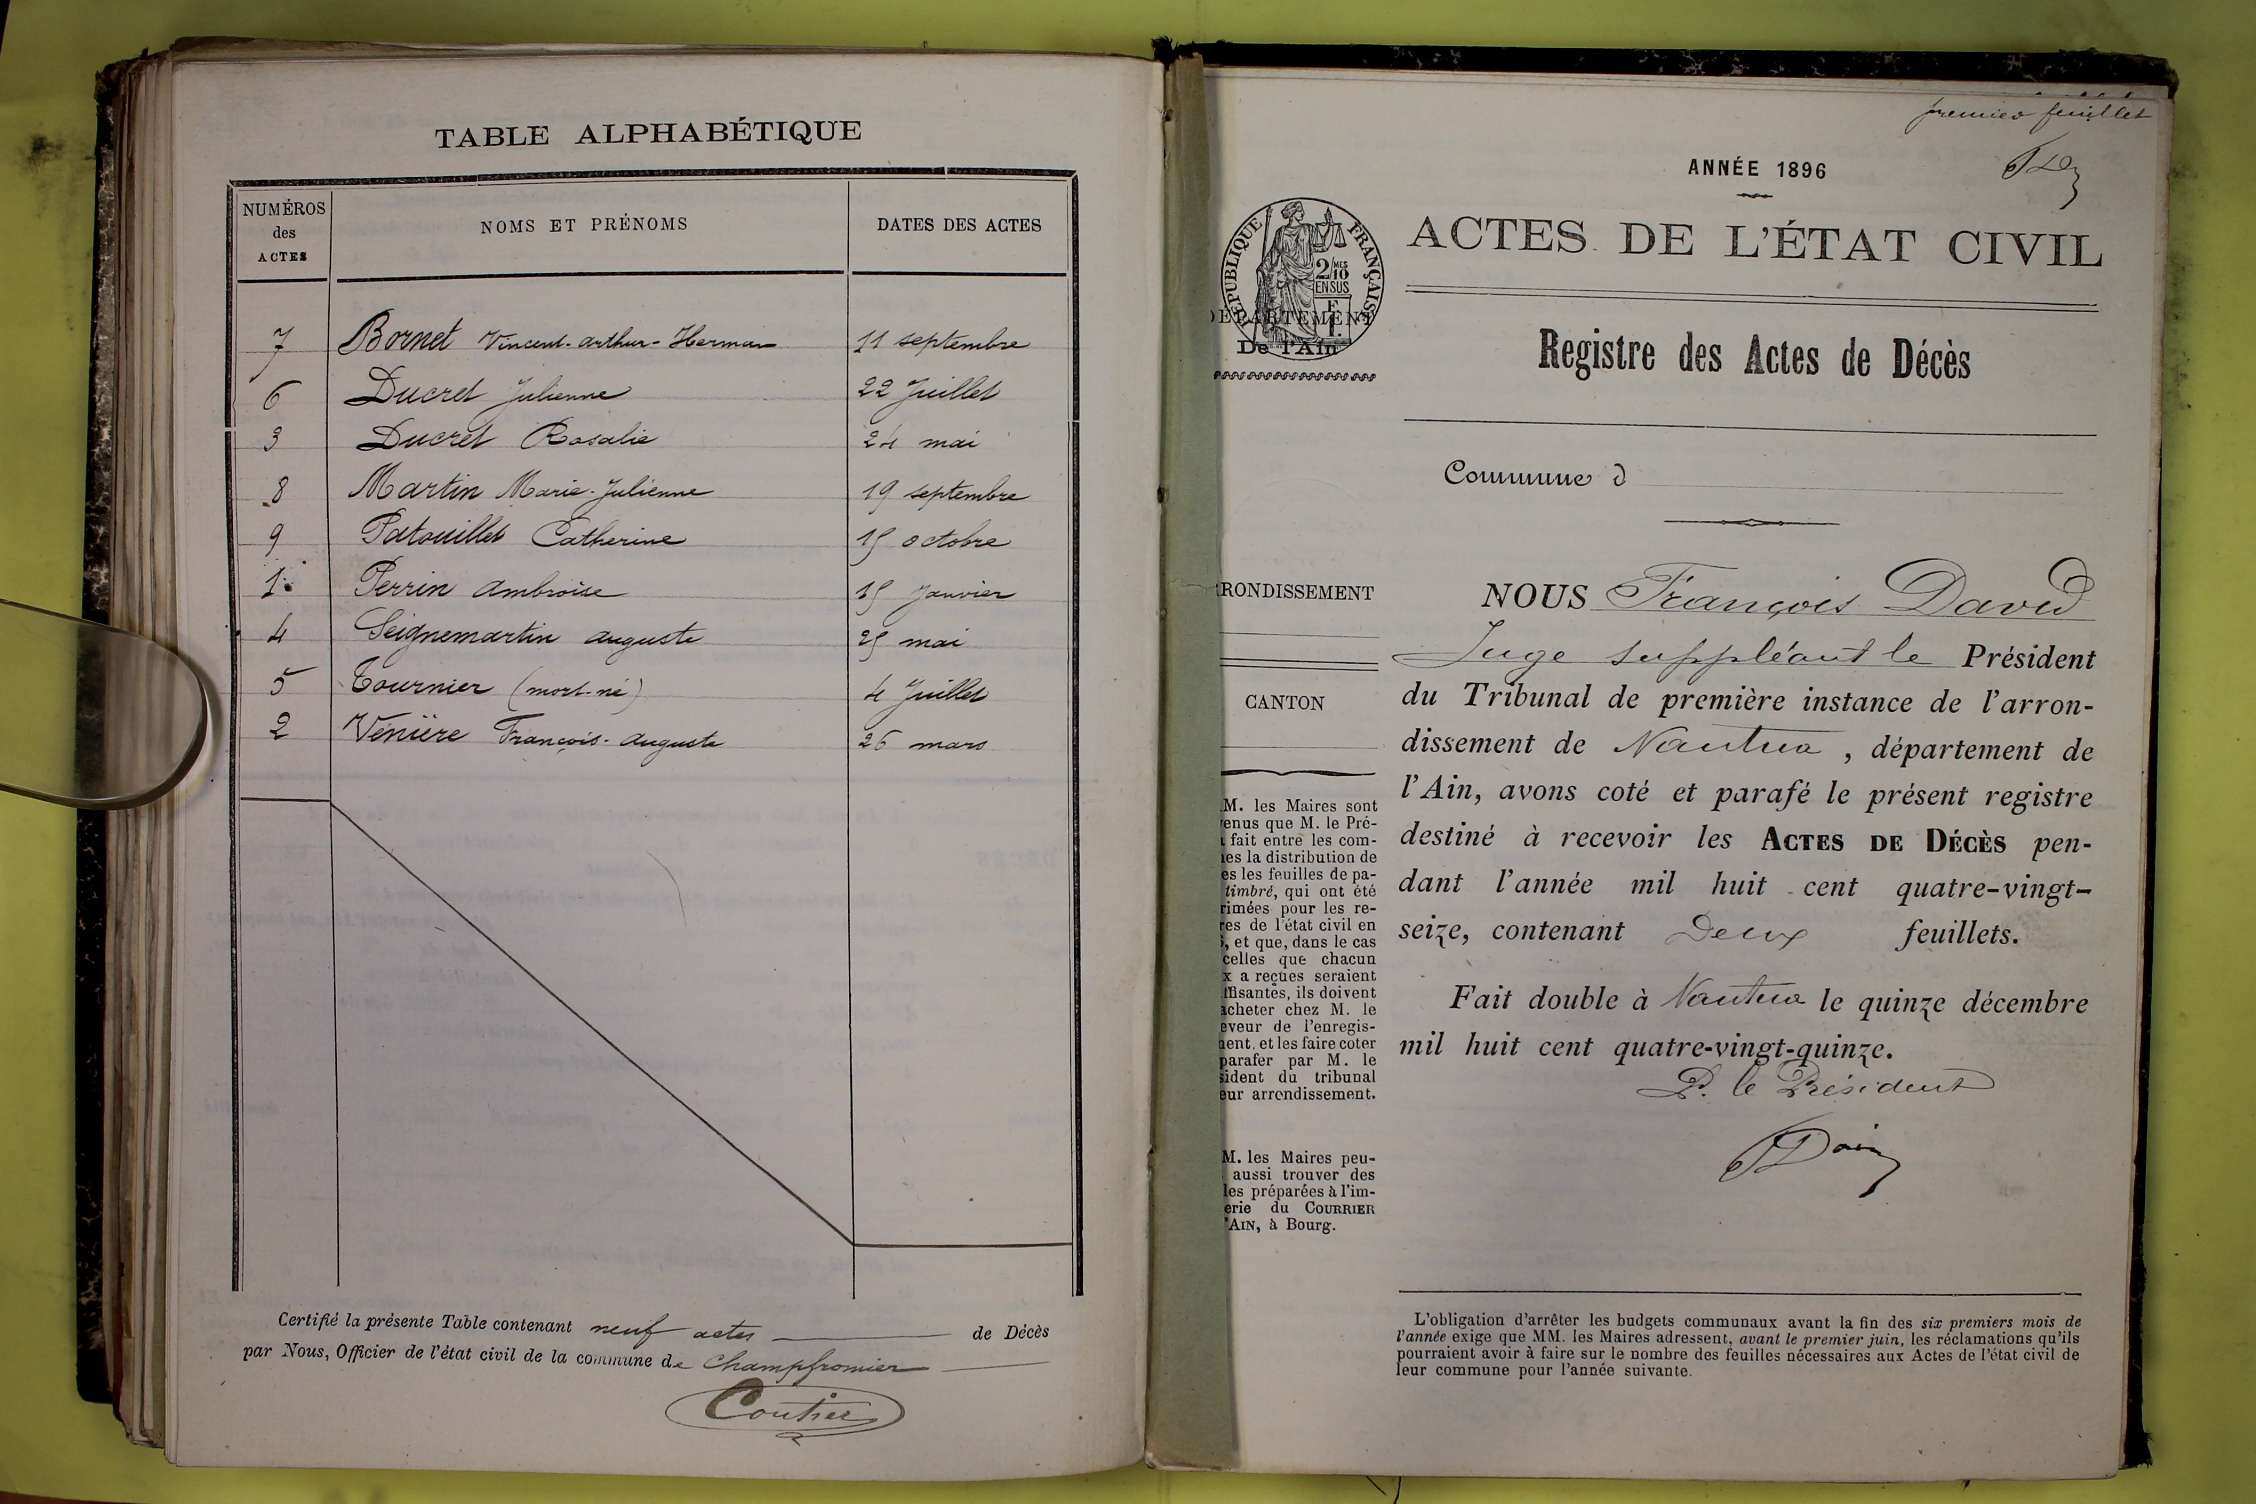 TABLE ALPHABÉTIQUE
NUMÉROS
des
ACTES
NOMS ET PRÉNOMS
DATES DES ACTES
7 Bornet Vincent-Arthur-Herman 11 septembre
6 Ducret Julienne 22 Juillet
3 Ducret Rosalie 24 mai
8 Martin Marie-Julienne 19 septembre
9 Patouillet Catherine 15 octobre
1 Perrin Ambroise 15 Janvier
4 Seignemartin auguste 25 mai
5 Tournier (mort-né) 4 Juillet
2 Venière François-auguste 26 mars
Certifié la présente Table contenant neuf actes de Décès
par Nous, Officier de l'état civil de la commune de Champfromier
Coutier
premier feuillet
ANNÉE 1896
RÉPUBLIQUE FRANÇAISE
2/10 MES
EN SUS
DÉPARTEMENT
De l'Ain
ACTES DE L'ÉTAT CIVIL
Registre des Actes de Décès
Commune d
RONDISSEMENT
CANTON
M. les Maires sont
enus que M. le Pré-
fait entre les com-
es la distribution de
es les feuilles de pa-
timbré, qui ont été
rimées pour les re-
res de l'état civil en
, et que, dans le cas
celles que chacun
x a reçues seraient
ffisantes, ils doivent
acheter chez M. le
eveur de l'enregis-
ent, et les faire coter
parafer par M. le
sident du tribunal
eur arrondissement.
M. les Maires peu-
aussi trouver des
les préparées à l'im-
erie du COURRIER
AIN, à Bourg.
NOUS François David
Juge suppléant le Président
du Tribunal de première instance de l'arron-
dissement de Nantua, département de
l'Ain, avons coté et parafé le présent registre
destiné à recevoir les ACTES DE DÉCÈS pen-
dant l'année mil huit cent quatre-vingt-
seize, contenant Deux feuillets.
Fait double à Nantua le quinze décembre
mil huit cent quatre-vingt-quinze.
P. le Président
L'obligation d'arrêter les budgets communaux avant la fin des six premiers mois de
l'année exige que MM. les Maires adressent, avant le premier juin, les réclamations qu'ils
pourraient avoir à faire sur le nombre des feuilles nécessaires aux Actes de l'état civil de
leur commune pour l'année suivante.